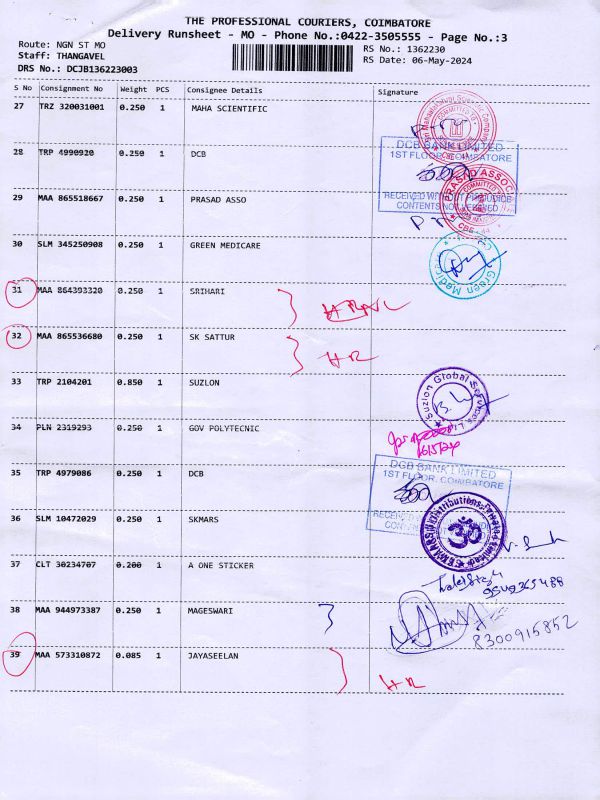 THE PROFESSIONAL COURIERS, COIMBATORE
Delivery Runsheet - MO - Phone No.:0422-3505555 - Page No.:3
Route: NGN ST MO
RS No.: 1362230
Staff: THANGAVEL
RS Date: 06-May-2024
DRS No.: DCJB136223003
S No Consignment No Weight PCS Consignee Details Signature
27 TRZ 320031001 0.250 1 MAHA SCIENTIFIC
28 TRP 4990920 0.250 1 DCB
DCB BANK LIMITED
1ST FLOOR, COIMBATORE
RECEIVED WITHOUT PREJUDICE
CONTENTS NOT VERIFIED
29 MAA 865518667 0.250 1 PRASAD ASSO
PRASAD ASSOC
CBE-44
30 SLM 345250908 0.250 1 GREEN MEDICARE
Green Medic
31 MAA 864393320 0.250 1 SRIHARI
32 MAA 865536680 0.250 1 SK SATTUR
HR
33 TRP 2104201 0.850 1 SUZLON
Suzlon Global Services L
34 PLN 2319293 0.250 1 GOV POLYTECNIC
35 TRP 4979086 0.250 1 DCB
DCB BANK LIMITED
1ST FLOOR, COIMBATORE
36 SLM 10472029 0.250 1 SKMARS
ॐ
37 CLT 30234707 0.200 1 A ONE STICKER
38 MAA 944973387 0.250 1 MAGESWARI
8300915852
39 MAA 573310872 0.085 1 JAYASEELAN
HR